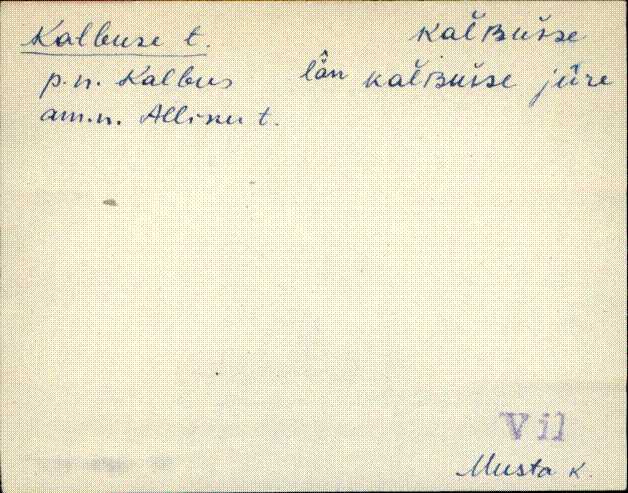 Kalbuse t. kal̆ʙŭsse
p.n. Kalbus lä̂n kal̆ʙŭsse jû̄re
am.n. Allinu t.
Vil
Musta k.